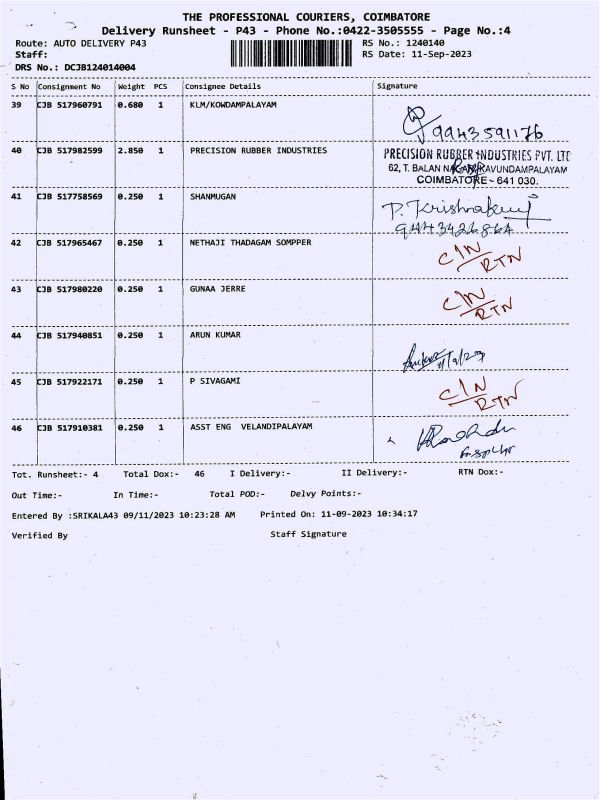 THE PROFESSIONAL COURIERS, COIMBATORE
Delivery Runsheet - P43 - Phone No.:0422-3505555 - Page No.:4
Route: AUTO DELIVERY P43 RS No.: 1240140
Staff: RS Date: 11-Sep-2023
DRS No.: DCJB124014004
S No Consignment No Weight PCS Consignee Details Signature
39 CJB 517960791 0.680 1 KLM/KOWDAMPALAYAM
9943591176
40 CJB 517982599 2.850 1 PRECISION RUBBER INDUSTRIES PRECISION RUBBER INDUSTRIES PVT. LTD
62, T. BALAN NAGAR, KAVUNDAMPALAYAM
COIMBATORE - 641 030.
41 CJB 517758569 0.250 1 SHANMUGAN P. Krishnakumj
9443426864
42 CJB 517965467 0.250 1 NETHAJI THADAGAM SOMPPER C/N
RTN
43 CJB 517980220 0.250 1 GUNAA JERRE C/N
RTN
44 CJB 517940851 0.250 1 ARUN KUMAR
45 CJB 517922171 0.250 1 P SIVAGAMI C/N
RTN
46 CJB 517910381 0.250 1 ASST ENG VELANDIPALAYAM
Tot. Runsheet:- 4 Total Dox:- 46 I Delivery:- II Delivery:- RTN Dox:-
Out Time:- In Time:- Total POD:- Delvy Points:-
Entered By :SRIKALA43 09/11/2023 10:23:28 AM Printed On: 11-09-2023 10:34:17
Verified By Staff Signature